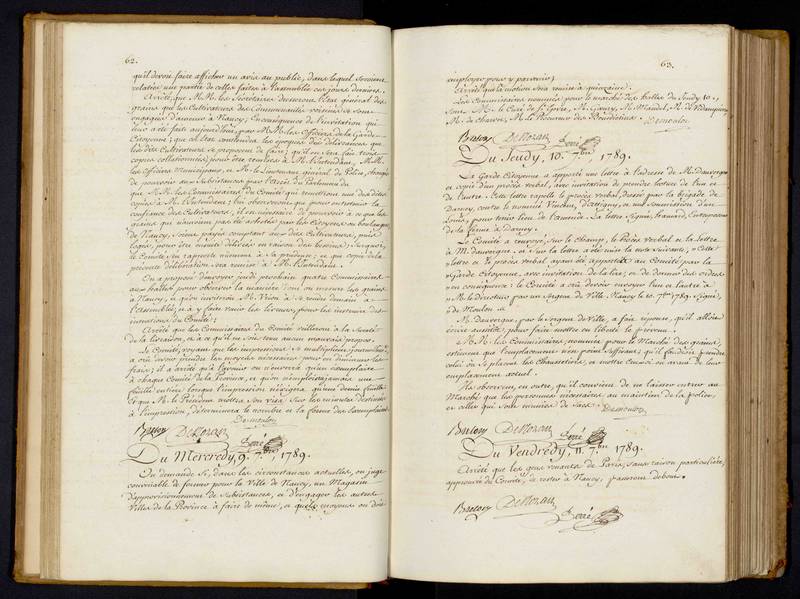 62.
qu'il devroit faire afficher un avis au public, dans lequel seroient
relatées une partie de celles faites à l'assemblée ces jours derniers.
Arrêté, que M.M. les Secrétaires dresseront l'état général des
grains que les Cultivateurs des Communautés voisines se sont
engagés d'amener à Nancy, en conséquence de l'invitation qui
leur a été faite aujourd'hui, par M.M. les Officiers de la Garde
Citoyenne; que cet état contiendra les époques des délivrances que
les dits Cultivateurs se proposent de faire; qu'il en sera fait trois
copies collationnées, pour être remises à M. l'Intendant, M.M.
les Officiers Municipaux, et M. le Lieutenant général de Police, chargés
de pourvoir aux Subsistances par l'arrêt du Parlement du
M.M. les Commissaires du Comité qui remettront une des dites
copies à M. l'Intendant, lui observeront que pour entretenir la
confiance des Cultivateurs, il est nécessaire de pourvoir à ce que les
grains qui n'auront pas été achetés par les Citoyens ou boulangers
de Nancy, soient payés comptant aux dits Cultivateurs, puis
logés, pour être ensuite délivrés en raison des besoins; Surquoi,
le Comité s'en rapporte néanmoins à sa prudence; et que copie de la
présente délibération sera remise à M. l'Intendant.
On a proposé d'envoyer jeudi prochain quatre Commissaires
aux halles pour observer la manière dont on mesure les grains
à Nancy, et qu'on inviteroit M. Vrion à se rendre demain à
l'assemblée, et à y faire venir les livreurs, pour les instruire des
intentions du Comité;
Arrêté que les Commissaires du Comité veilleront à la Sureté
de la livraison, et à ce qu'il ne soit tenu aucun mauvais propos.
Le Comité, voyant que les impressions se multiplient journellement,
a cru devoir prendre les moyens nécessaires pour en diminuer les
frais; il a arrêté qu'à l'avenir on n'enverra qu'un exemplaire
à chaque Comité de la Province, et qu'on n'emploiera jamais une
feuille entière lorsque l'impression n'exigera qu'une demie feuille,
et que M. le Président mettra son visa sur les minutes destinées
à l'impression, déterminera le nombre et la forme des Exemplaires.
Desmoulon
Breton DeRozan Ferré
Du Mercredy, 9. 7.bre 1789.
On demande si, dans les circonstances actuelles, on juge
convenable de former pour la Ville de Nancy, un Magasin
d'approvisionnement de Subsistances, et d'engager les autres
Villes de la Province à faire de même, et quels moyens on doit
63.
employer pour y parvenir;
Arrêté que la motion sera remise à quinzaine.
Les Commissaires nommés pour le marché des halles du Jeudy 10.,
M. le Curé de St. Epvre, M. Ganry, M. Mandel, M. de
M. de Charvet, M. le Procureur des Bénédictins.
Desmoulon
Breton DeRozan Ferré
Du Jeudy, 10. 7.bre 1789.
La Garde Citoyenne a apporté une lettre à l'adresse de M. Dauvergne
et copie d'un procès verbal, avec invitation de prendre lecture de l'un et
de l'autre. Cette lettre rapelle le procès verbal, dressé par la brigade de
Darney, contre le nommé Vinchon, d'Attigny, et une soumission d'un
Louis, pour tenir lieu de l'amende. La lettre signée, Framard, Entreposeur
de la ferme à Darney.
Le Comité a renvoyé, sur le champ, le Procès verbal et la Lettre
à M. Dauvergne, et sur la lettre a été mis le mot suivant, «Cette
«lettre et le procès verbal ayant été apportés au Comité par la
«Garde Citoyenne, avec invitation de la lire, et de donner des ordres
«en conséquence: le Comité a crû devoir envoyer l'un et l'autre à
«M. le directeur par un Sergent de Ville. Nancy le 10. 7.bre 1789. Signé,
«De Moulon.»
M. Dauvergne, par le Sergent de Ville, a fait réponse, qu'il alloit
écrire aussitôt, pour faire mettre en liberté le prévenu.
M.M. les Commissaires, nommés pour le Marché des grains,
estiment que l'emplacement n'est point suffisant; qu'il faudroit prendre
celui où se placent les Chaudronniers, et mettre ceux-ci en avant de leur
emplacement actuel.
Ils observent, en outre, qu'il convient de ne laisser entrer au
Marché que les personnes nécessaires au maintien de la police,
et celles qui sont munies de Sacs.
Desmoulon
Breton DeRozan Ferré
Du Vendredy, 11. 7.bre 1789.
Arrêté que les gens venants de Paris, sans raison particulière,
approuvée du Comité, de rester à Nancy, passeront debout.
Breton DeRozan
Ferré